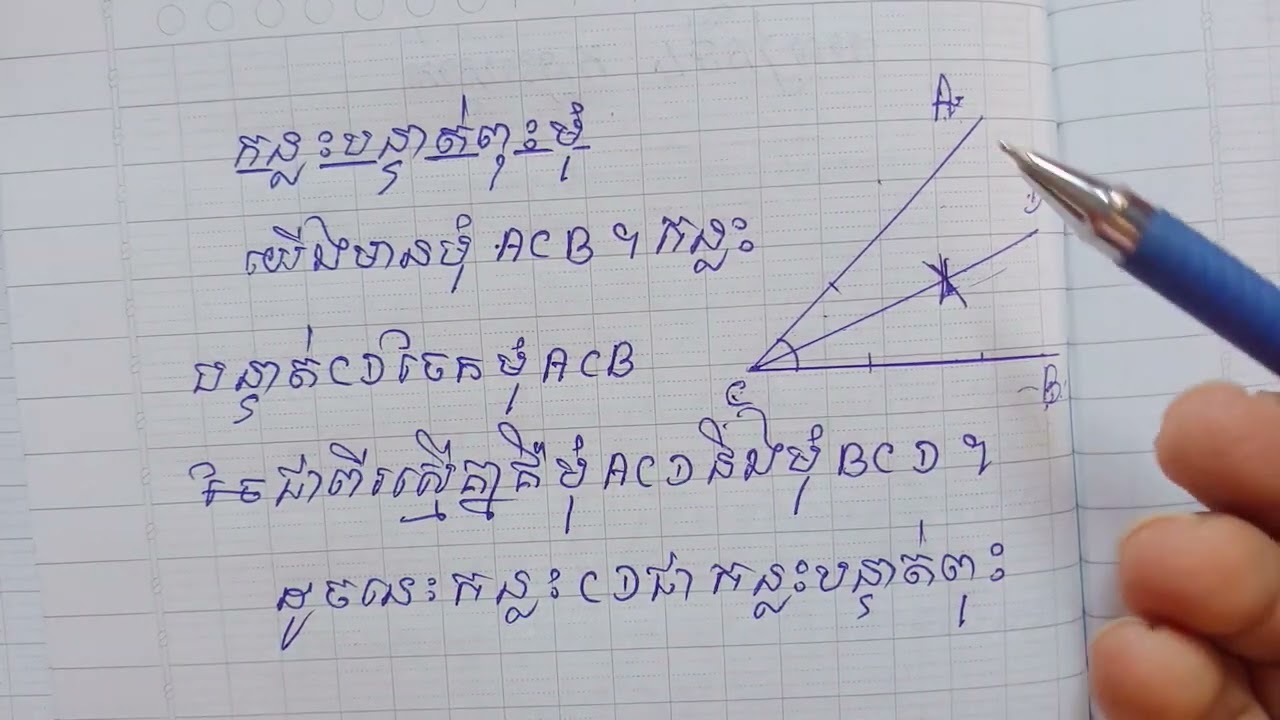 កន្លះបន្ទាត់ពុះមុំ
យើងមានមុំ ACB ។ កន្លះ
បន្ទាត់ CD ចែកមុំ ACB
ជាពីរស្មើគ្នាគឺមុំ ACD និងមុំ BCD ។
ដូចនេះកន្លះ CD ជា កន្លះបន្ទាត់ពុះ
A
D
C
B